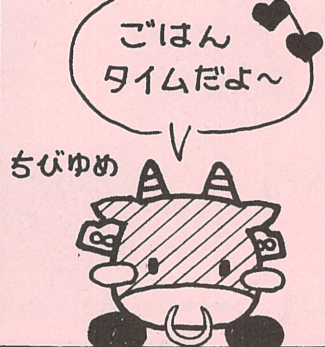 ごはん
タイムだよ~
ちびゆめ
8
8